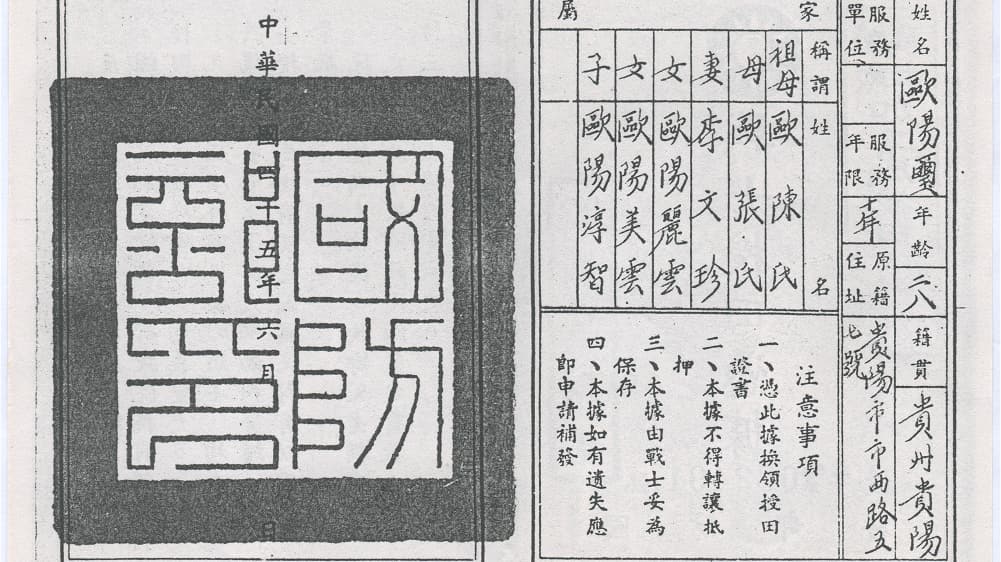 姓名 歐陽璽 年齡 二八 籍貫 貴州貴陽
服務單位 服務年限 十年 原籍住址 貴陽市市西路五七號
家屬
稱謂 姓名
祖母 歐陳氏
母 歐張氏
妻 李文珍
女 歐陽麗雲
女 歐陽美雲
子 歐陽淳智
注意事項
一、憑此據換領授田
證書
二、本據不得轉讓抵
押
三、本據由戰士妥為
保存
四、本據如有遺失應
即申請補發
國防部印
中華民國四十五年六月 日